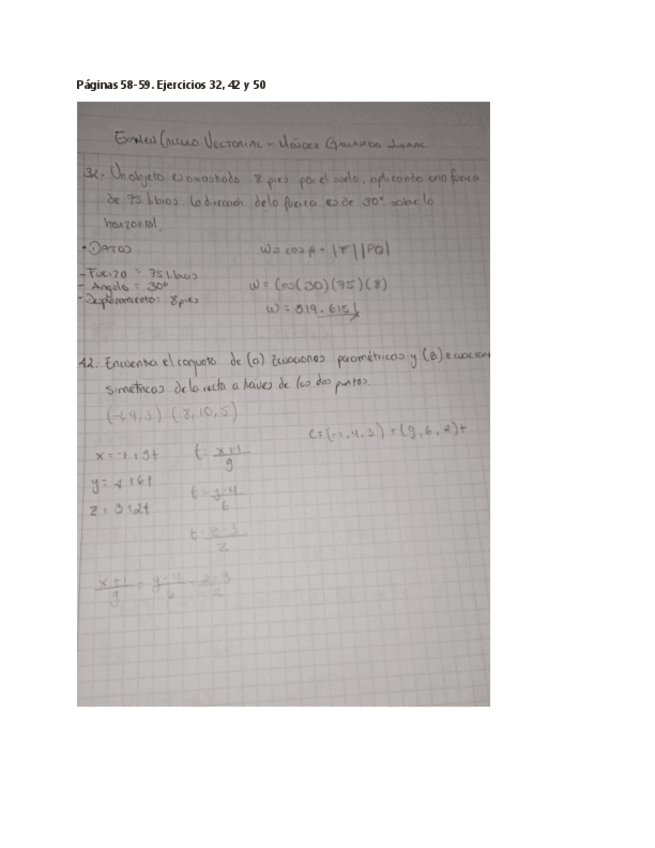 Páginas 58-59. Ejercicios 32, 42 y 50
Examen Calculo Vectorial - Isaac
32. Un objeto es arrastrado 8 pies por el suelo, aplicando una fuerza
de 75 libras. La dirección de la fuerza es de 30° sobre la
horizontal.
• Datos
W = cos β = ||PQ|
- Fuerza = 75 libras
- Angulo = 30°
W = Cos(30)(75)(8)
- Desplazamiento: 8 pies
W = 519.615
42. Encuentra el conjunto de (a) Ecuaciones paramétricas y (b) ecuacion
simetricas de la recta a traves de los dos puntos.
(-1,4,3) (8,10,5)
(-1,4,3) + (9,6,2)t
x = -1+9t
t = x+1/9
y = 4+6t
t = y-4/6
z = 3+2t
t = z-3/2
x+1/9 = y-4/6 = z-3/2